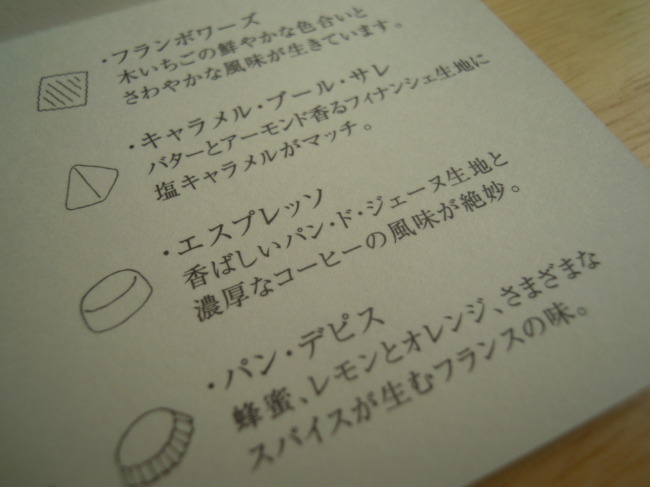 ・フランボワーズ
木いちごの鮮やかな色合いと
さわやかな風味が生きています。
・キャラメル・ブール・サレ
バターとアーモンド香るフィナンシェ生地に
塩キャラメルがマッチ。
・エスプレッソ
香ばしいパン・ド・ジェーヌ生地と
濃厚なコーヒーの風味が絶妙。
・パン・デピス
蜂蜜、レモンとオレンジ、さまざまな
スパイスが生むフランスの味。